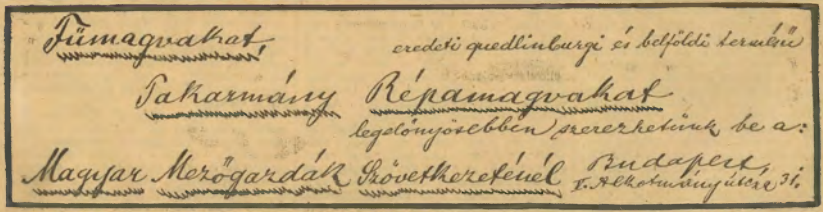 Fűmagvakat
eredeti quedlinburgi és belföldi termésű
Takarmány Répamagvakat
legelőnyösebben szerezhetünk be a:
Magyar Mezőgazdák Szövetkezeténél Budapest
V. Alkotmány utcza 31.